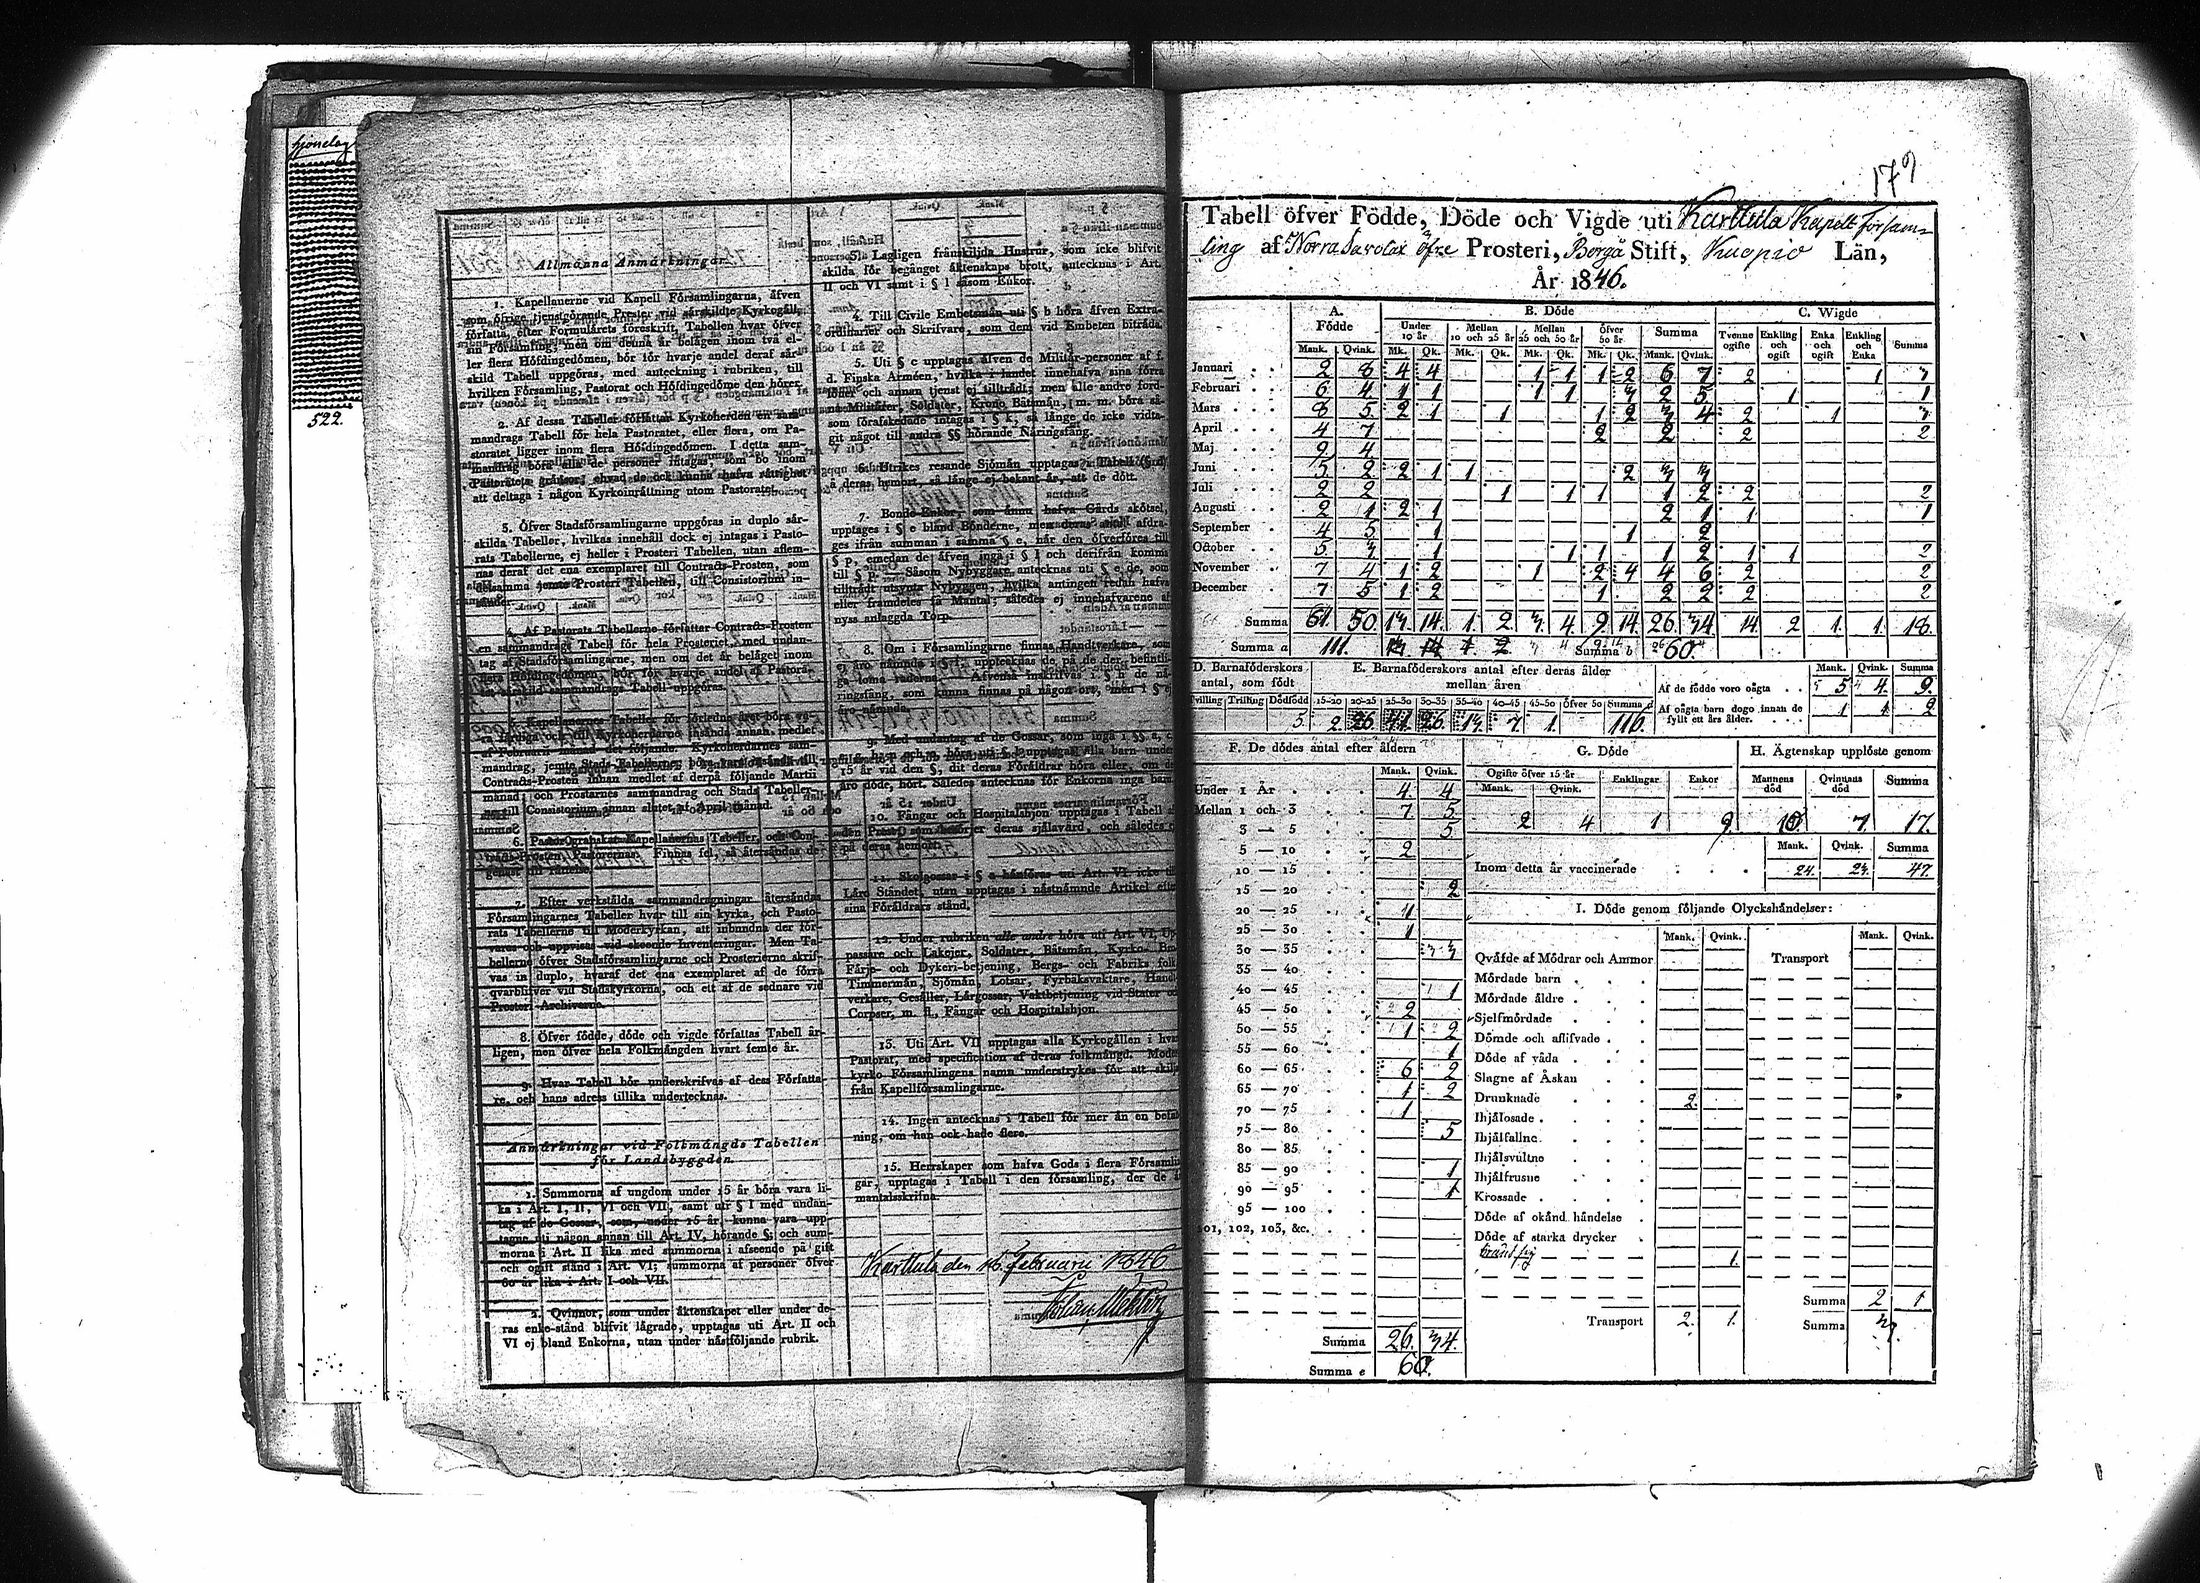 522.
Allmänna Anmärkningar
1. Kapellanerne vid Kapell Församlingarna, äfven
som öfrige tjenstgörande Prester vid särskildte Kyrkogäll,
författa, efter Formulärets föreskrift, Tabellen hvar öfver
sin Församling; men om denna är belägen inom två el-
ler flera Höfdingedömen, bör för hvarje andel deraf sär-
skild Tabell uppgöras, med anteckning i rubriken, till
hvilken Församling, Pastorat och Höfdingedöme den hörer.
2. Af dessa Tabeller författar Kyrkoherden en sam-
mandrags Tabell för hela Pastoratet, eller flera, om Pa-
storatet ligger inom flera Höfdingedömen. I detta sam-
mandrag böra alla de personer intagas, som bo inom
Pastoratets gränsor, ehvad de ock kunna hafva rättighet
att deltaga i någon Kyrkoinrättning utom Pastoratet.
3. Öfver Stadsförsamlingarne uppgöras in duplo sär-
skilda Tabeller, hvilkas innehåll dock ej intagas i Pasto-
rats Tabellerne, ej heller i Prosteri Tabellen, utan aflem-
nas deraf det ena exemplaret till Contracts-Prosten, som
detsamma jemte Prosteri Tabellen, till Consistorium in-
sänder.
4. Af Pastorats Tabellerne författar Contracts-Prosten
en sammandrags Tabell för hela Prosteriet, med undan-
tag af Stadsförsamlingarne, men om det är belägit inom
flera Höfdingedömen, bör för hvarje andel af Pastora-
tet särskild sammandrags Tabell uppgöras.
5. Kapellanernes Tabeller för förledne året böra va-
ra färdiga och till Kyrkoherdarne insända innan medlet
af Februarii månad det följande. Kyrkoherdarnes sam-
mandrag, jemte Stads-Tabellerne, böra vara insände till
Contracts-Prosten innan medlet af derpå följande Martii
månad och Prostarnes sammandrag och Stads Tabeller-
ne till Consistorium innan slutet af April månad.
6. Pastor granskar Kapellanernas Tabeller, och Con-
tracts-Prosten Pastorernas. Finnas fel, så återsändas de
genast till rättelse.
7. Efter verkställda sammandragningar återsändas
Församlingarnes Tabeller hvar till sin kyrka, och Pasto-
rats Tabellerne till Moderkyrkan, att inbundna der för-
varas och uppvisas vid skeende Inventeringar. Men Ta-
bellerne öfver Stadsförsamlingarne och Prosterierne skrif-
vas in duplo, hvaraf det ena exemplaret af de förra
qvarblifver vid Stadskyrkorna, och ett af de sednare vid
Prosteri Archiverne.
8. Öfver födde, döde och vigde författas Tabell år-
ligen, men öfver hela Folkmängden hvart femte år.
9. Hvar Tabell bör underskrifvas af dess Författa-
re, och hans adress tillika undertecknas.
Anmärkningar vid Folkmängds Tabellen
för Landsbyggden.
1. Summorna af ungdom under 15 år böra vara li-
ka i Art. I, II, VI och VII, samt utr § I med undan-
tag af de Gossar, som, under 15 år, kunna vara upp-
tagne uti någon annan till Art. IV, hörande §; och sum-
morna i Art. II lika med summorna i afseende på gift
och ogift stånd i Art. VI; summorna af personer öfver
60 år lika i Art. I och VII.
2. Qvinnor, som under äktenskapet eller under de-
ras enke-stånd blifvit lägrade, upptagas uti Art. II och
VI ej bland Enkorna, utan under nästföljande rubrik.
3. Lagligen frånskiljda Hustrur, som icke blifvit
skilda för begånget äktenskaps brott, antecknas i Art.
II och VI samt i § l såsom Enkor.
4. Till Civile Embetsmän uti § b höra äfven Extra-
ordinarier och Skrifvare, som dem vid Embeten biträda.
5. Uti § c upptagas äfven de Militär-personer af f.
d. Finska Arméen, hvilka i landet innehafva sina förra
löner och annan tjenst ej tillträdt; men alle andre ford-
na Militärer, Soldater, Krono Båtsmän, m. m. böra så-
som förafskedade intagas i § k, så länge de icke vidta-
git något till andra §§ hörande Näringsfång.
6. Utrikes resande Sjömän upptagas i Tabell
å deras hemort, så länge ej bekant är, att de dött.
7. Bonde-Enkor, som ännu hafva Gårds skötsel,
upptages i § e bland Bönderne, men deras antal afdra-
ges ifrån summan i samma § e, när den öfverföres till
§ p, emedan de äfven ingå i § l och derifrån komma
till § p. Såsom Nybyggare antecknas uti § e de, som
tillträdt utsynta Nybyggen, hvilka antingen redan hafva
eller framdeles få Mantal; således ej innehafvarene af
nyss anlaggda Torp.
8. Om i Församlingarne finnas Handtverkare, som
ej äro nämnde i § f, uppteknas de på de der befintli-
ga toma raderna. Äfvenså inskrifvas i § h de nä-
ringsfång, som kunna finnas på någon ort, men i § ej
äro nämnda.
9. Med undantag af de Gossar, som ingå i §§ a, c,
15 år vid den §, dit deras Föräldrar höra eller, om de
äro döde, hört. Således antecknas för Enkorna inga barn
10. Fångar och Hospitalshjon upptagas i Tabell af
den Prest, som besörjer deras själavård, och således ej
på deras hemort.
11. Skolgossar i § a hänföras uti Art. VI icke till
Läro Ståndet, utan upptagas i nästnämnde Artikel efter
sina Föräldrars stånd.
12. Under rubriken alle andre höra uti Art. VI, Up-
passare och Lakejer, Soldater, Båtsmän, Kyrko- Bro-
Färje- och Dykeri-betjening, Bergs- och Fabriks folk
Timmermän, Sjömän, Lotsar, Fyrbåksvaktare, Handt-
verkare, Gesäller, Lärgossar, Vaktbetjening vid Stater och
Corpser, m. fl., Fångar och Hospitalshjon.
13. Uti Art. VII upptagas alla Kyrkogällen i hvart
Pastorat, med specification af deras folkmängd. Moder-
kyrko Församlingens namn understrykes för att skilja
från Kapellförsamlingarne.
14. Ingen antecknas i Tabell för mer än en befatt-
ning, om han ock hade flere.
15. Herrskaper som hafva Gods i flera Församlin-
gar, upptagas i Tabell i den församling, der de
mantalsskrifna.
Karttula den 16. Februarii 1846
179
Tabell öfver Födde, Döde och Vigde uti Karttula Kapell Försam-
ling af Norra Savolax öfre Prosteri, Borgå Stift, Kuopio Län,
År 1846.
A. Födde B. Döde C. Wigde
Under 10 år Mellan 10 och 25 år Mellan 25 och 50 år öfver 50 år Summa Tvenne ogifte Enkling och ogift Enka och ogift Enkling och Enka Summa
Mank. Qvink. Mk. Qk. Mk. Qk. Mk. Qk. Mk. Qk. Mank. Qvink.
Januari 2 8 4 4 1 1 1 2 6 7 2 1 3
Februari 6 4 1 1 1 1 3 2 5 1 1
Mars 8 5 2 1 1 1 2 3 4 2 1 3
April 4 7 2 2 2 2
Maj 9 4
Juni 5 2 2 1 1 2 3 3
Juli 2 2 1 1 1 1 2 2 2
Augusti 2 1 2 1 2 1 1 1
September 4 5 1 1 2
October 5 3 1 1 1 1 2 1 1 2
November 7 4 1 2 1 2 4 4 6 2 2
December 7 5 1 2 1 2 2 2 2
Summa 61. 50 13. 14. 1. 2 3. 4. 9. 14. 26. 34 14. 2 1. 1. 18.
Summa a 111. Summa b 60.
D. Barnaföderskors antal, som födt
Tvilling Trilling Dödfödd
5.
E. Barnaföderskors antal efter deras ålder mellan åren
15-20 20-25 25-30 30-35 35-40 40-45 45-50 öfver 50 Summa d
2 26 41 26 13. 7 1. 116.
Mank. Qvink. Summa
Af de födde voro oägta . . 5 4. 9.
Af oägta barn dogo innan de fyllt ett års ålder. 1 1 2
F. De dödes antal efter åldern
Mank. Qvink.
Under 1 År 4. 4
Mellan 1 och 3 7 5
3 — 5 5
5 — 10 2
10 — 15
15 — 20 2
20 — 25
25 — 30 1
30 — 35 3
35 — 40
40 — 45 1
45 — 50 2
50 — 55 1 2
55 — 60 1
60 — 65 6 2
65 — 70 1 2
70 — 75 1
75 — 80 5
80 — 85
85 — 90 1
90 — 95 1
95 — 100
101, 102, 103, &c.
Summa 26. 34.
Summa e 60.
G. Döde
Ogifte öfver 15 år Enklingar Enkor
Mank. Qvink.
2 4 1 9
H. Ägtenskap upplöste genom
Mannens död Qvinnans död Summa
10. 7. 17.
Mank. Qvink. Summa
Inom detta år vaccinerade 24. 23. 47.
I. Döde genom följande Olyckshändelser:
Mank. Qvink. Mank. Qvink.
Qväfde af Mödrar och Ammor Transport
Mördade barn
Mördade äldre
Sjelfmördade
Dömde och aflifvade
Döde af våda
Slagne af Åskan
Drunknade 2.
Ihjälosade
Ihjälfallne
Ihjälsvultne
Ihjälfrusne
Krossade
Döde af okänd händelse
Döde af starka drycker
1.
Summa 2 1
Transport 2. 1. Summa 3.